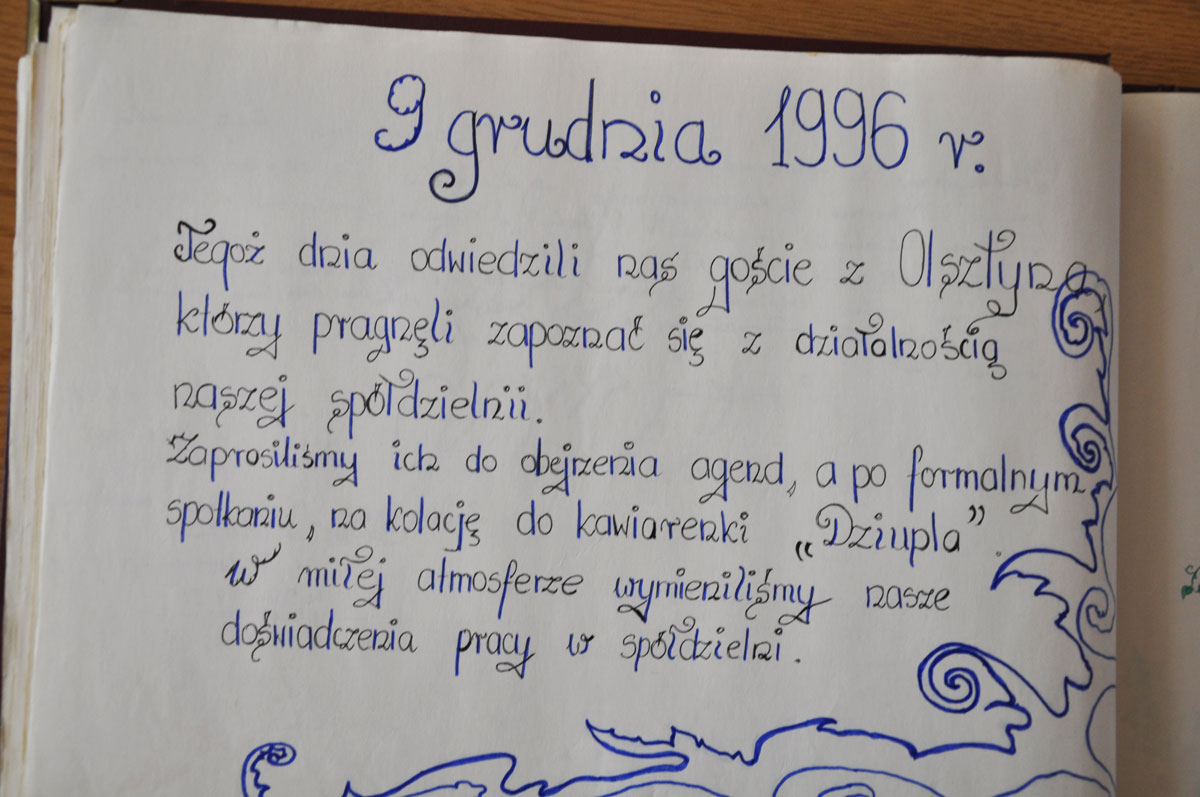 9 grudnia 1996 r.
Tegoż dnia odwiedzili nas goście z Olsztyna
którzy pragnęli zapoznać się z działalnością
naszej spółdzielnii.
Zaprosiliśmy ich do obejrzenia agend, a po formalnym
spotkaniu, na kolację do kawiarenki „Dziupla”.
w miłej atmosferze wymieniliśmy nasze
doświadczenia pracy w spółdzielni.